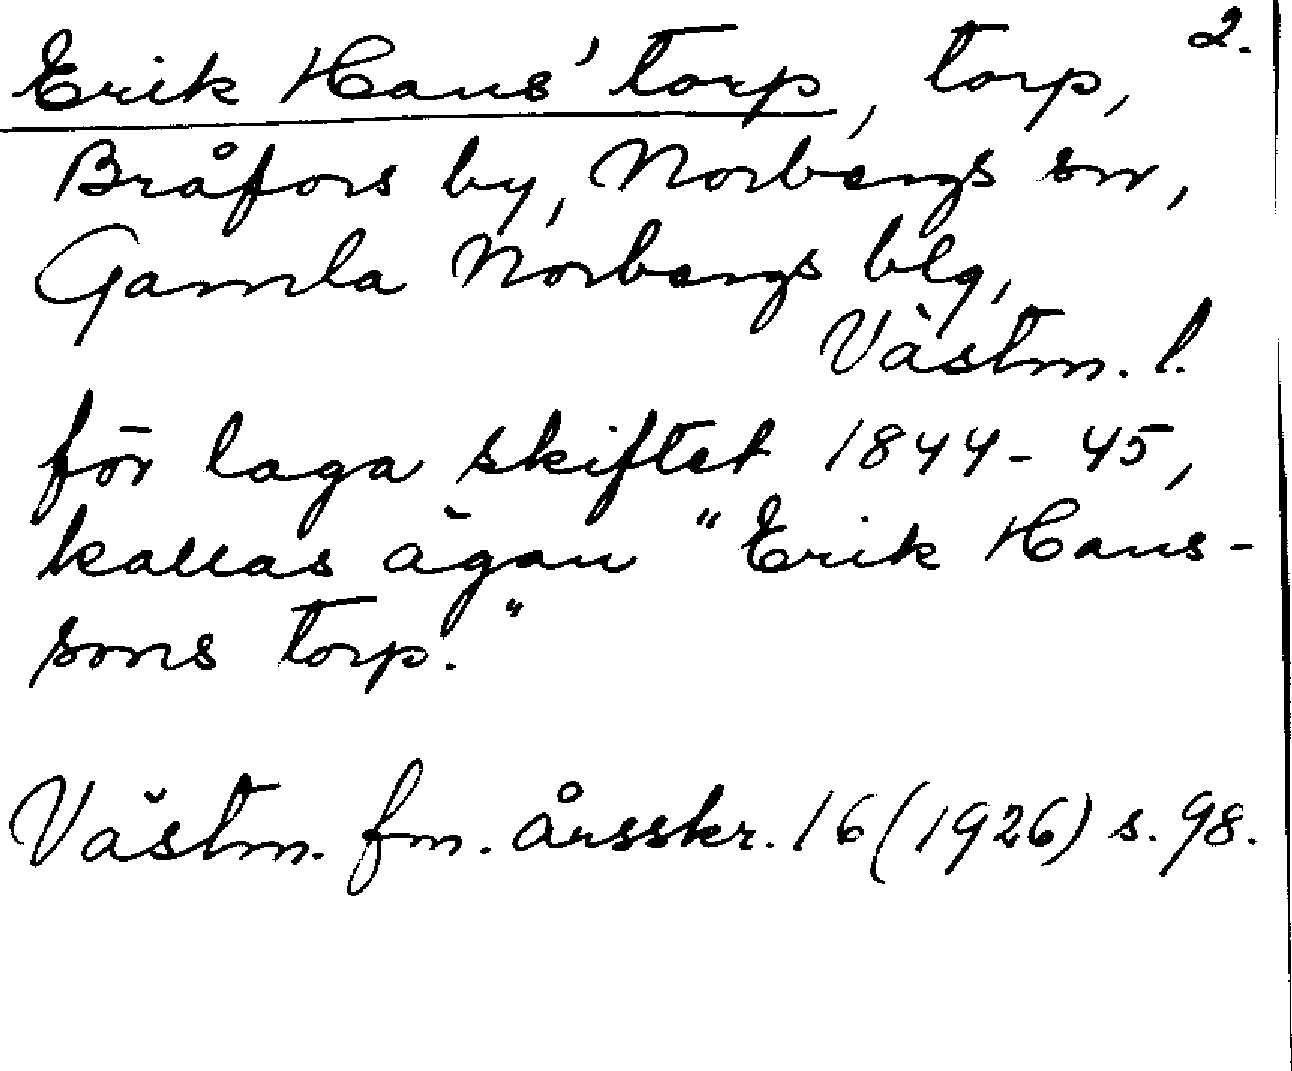 2.
Erik Hans' torp, torp,
Bråfors by, Norbergs sn,
Gamla Norbergs blg,
Västm. l.
för laga skiftet 1844-45,
kallas ägan "Erik Hans-
sons torp."
Västm. fm. årsskr. 16 (1926) s. 98.